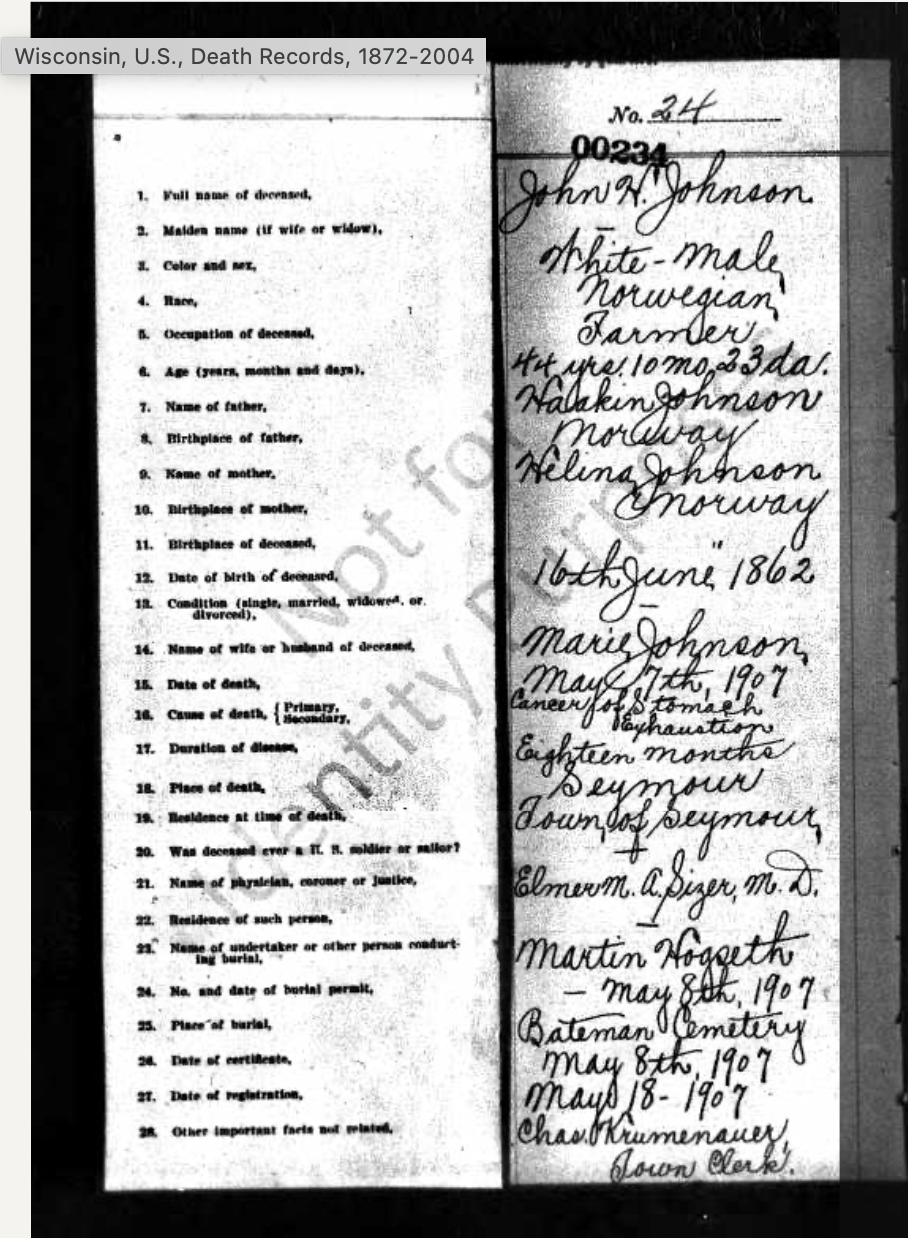 Wisconsin, U.S., Death Records, 1872-2004
No. 24
00234
1. Full name of deceased, John H. Johnson
2. Maiden name (if wife or widow), —
3. Color and sex, White - Male
4. Race, Norwegian
5. Occupation of deceased, Farmer
6. Age (years, months and days), 44 yrs. 10 mo. 23 da.
7. Name of father, Haaskin Johnson
8. Birthplace of father, Norway
9. Name of mother, Helina Johnson
10. Birthplace of mother, Norway
11. Birthplace of deceased, "
12. Date of birth of deceased, 16th June, 1862
13. Condition (single, married, widowed, or
divorced), —
14. Name of wife or husband of deceased, Marie Johnson,
15. Date of death, May 7th, 1907
16. Cause of death, { Primary, Cancer of Stomach
Secondary, Exhaustion
17. Duration of disease, Eighteen months
18. Place of death, Seymour
19. Residence at time of death, Town of Seymour,
20. Was deceased ever a U. S. soldier or sailor? —
21. Name of physician, coroner or justice, Elmer M. A. Sizer, M. D.
22. Residence of such person, —
23. Name of undertaker or other person conduct-
ing burial, Martin Hogseth
24. No. and date of burial permit, — May 8th, 1907
25. Place of burial, Bateman Cemetery
26. Date of certificate, May 8th, 1907
27. Date of registration, May 18 - 1907
28. Other important facts not related, Chas. Krumenauer,
Town Clerk.
Not for
Identity Purposes